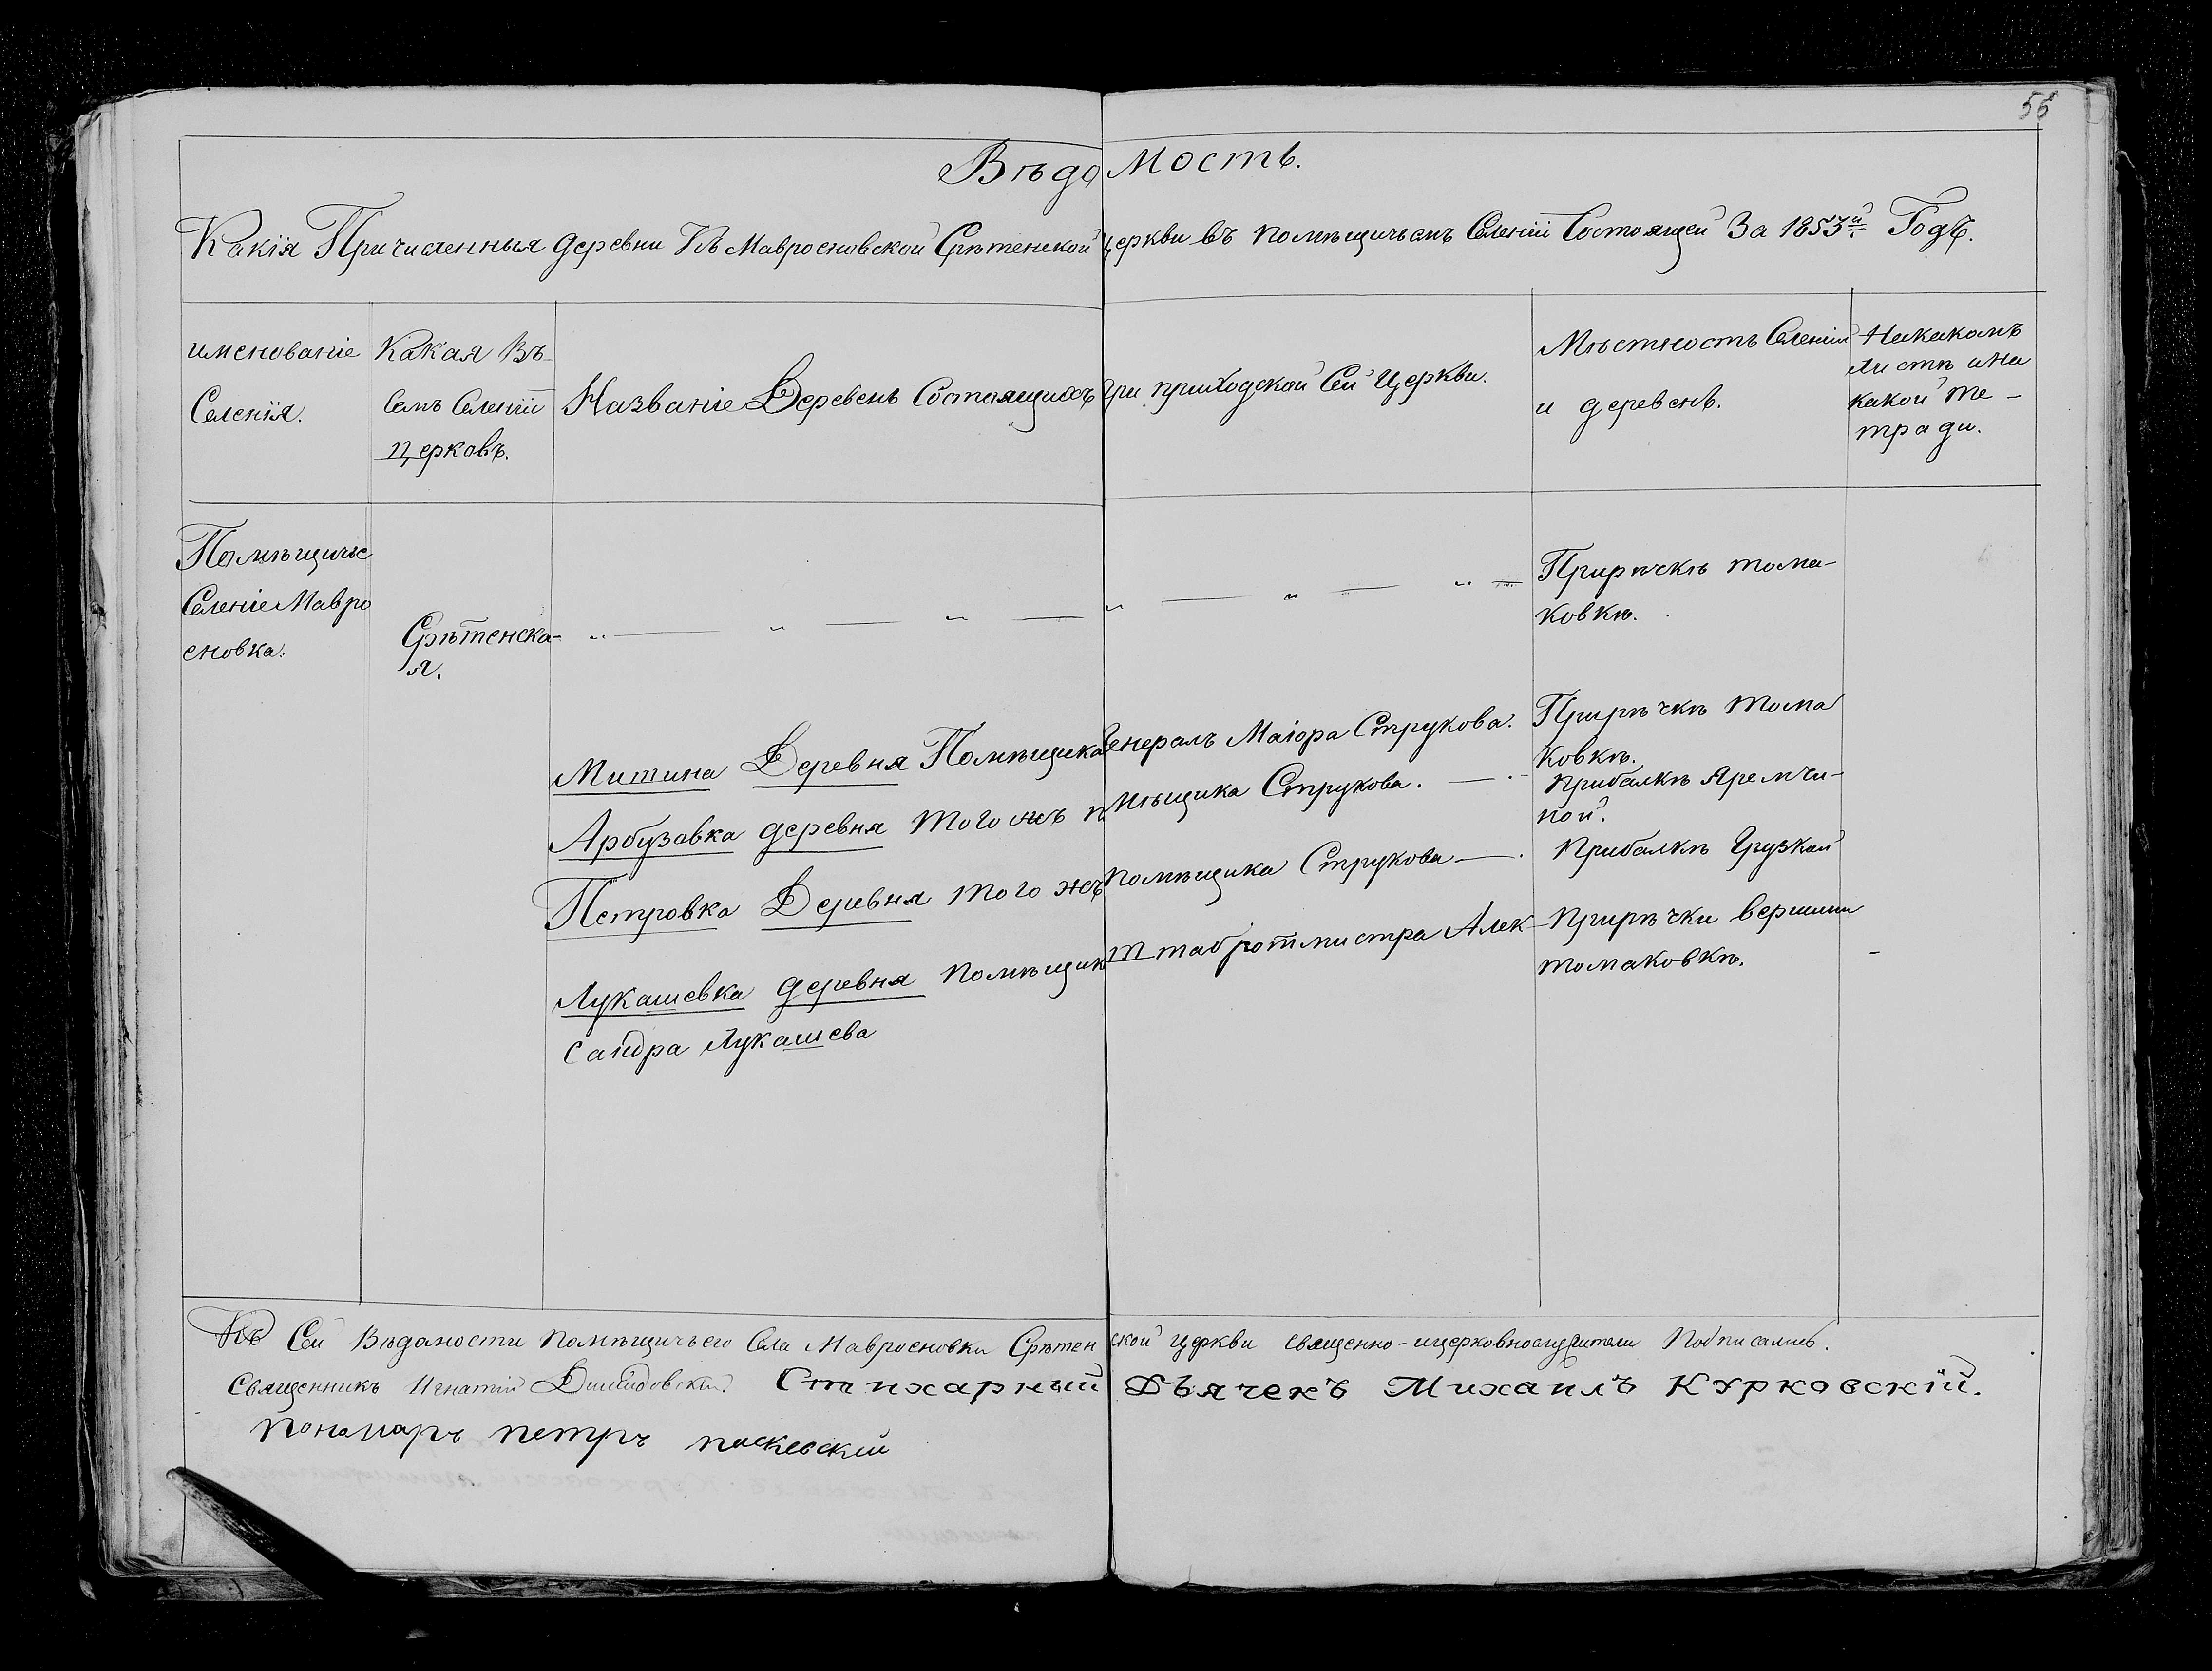 56
Вѣдомость.
Какія Причисленныя деревни Къ Мавроеновской Срѣтенской церкви въ помѣщичьемъ Селеніи Состоящей За 1853й Годъ.
именованіе
Селенія.
Какая Въ
семъ Селеніи
церковъ.
Названіе Деревень Состоящихъ При приходской Сей Церкви.
Мѣстность Селенія
и деревень.
На какомъ
листѣ и на
какой те-
тради.
Помѣщичье
Селеніе Мавро
еновка.
Срѣтенска-
я.
Прирѣчкѣ тома-
ковкѣ.
Митина Деревня Помѣщика Генералъ Маіора Струкова.
Прирѣчкѣ Тома
ковкѣ.
Арбузавка деревня Того жъ помѣщика Струкова.
прибалкѣ Яремчи-
ной.
Петровка Деревня того жъ помѣщика Струкова
прибалкѣ Грузкой
Лукашевка деревня помѣщик штабротмистра Алек-
сандра Лукашева
Прирѣчки вершини
томаковкѣ.
Къ Сей Вѣдамости помѣщичьего Села Мавроеновки Срѣтенской церкви священно-ицерковнослужители Подписались.
Священникъ Игнатій Стихарный Дьячекъ Михаилъ Курковскій.
пономарь петръ